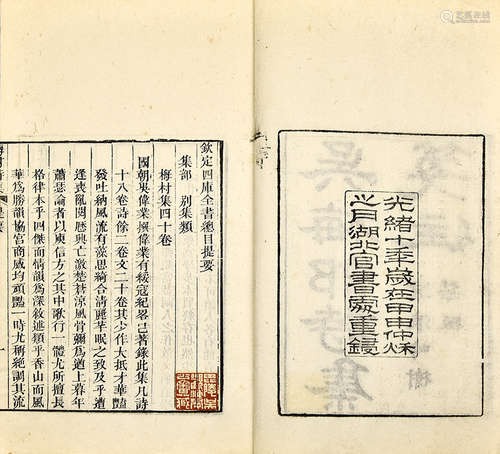 光緒十年歲在甲申仲秋
之月湖北官書處重鐫
欽定四庫全書總目提要
集部 別集類
梅村集四十卷
國朝吳偉業撰偉業有綏寇紀畧已著錄此集凡詩
十八卷詩餘二卷文二十卷其少作大抵才華豔
發吐納風流有藻思綺合清麗芊眠之致及乎遭
逢喪亂閱歷興亡激楚蒼涼風骨彌爲遒上暮年
蕭瑟論者以庾信方之其中歌行一體尤所擅長
格律本乎四傑而情韻爲深敘述類乎香山而風
華爲勝韻協宮商感均頑豔一時尤稱絕調其流